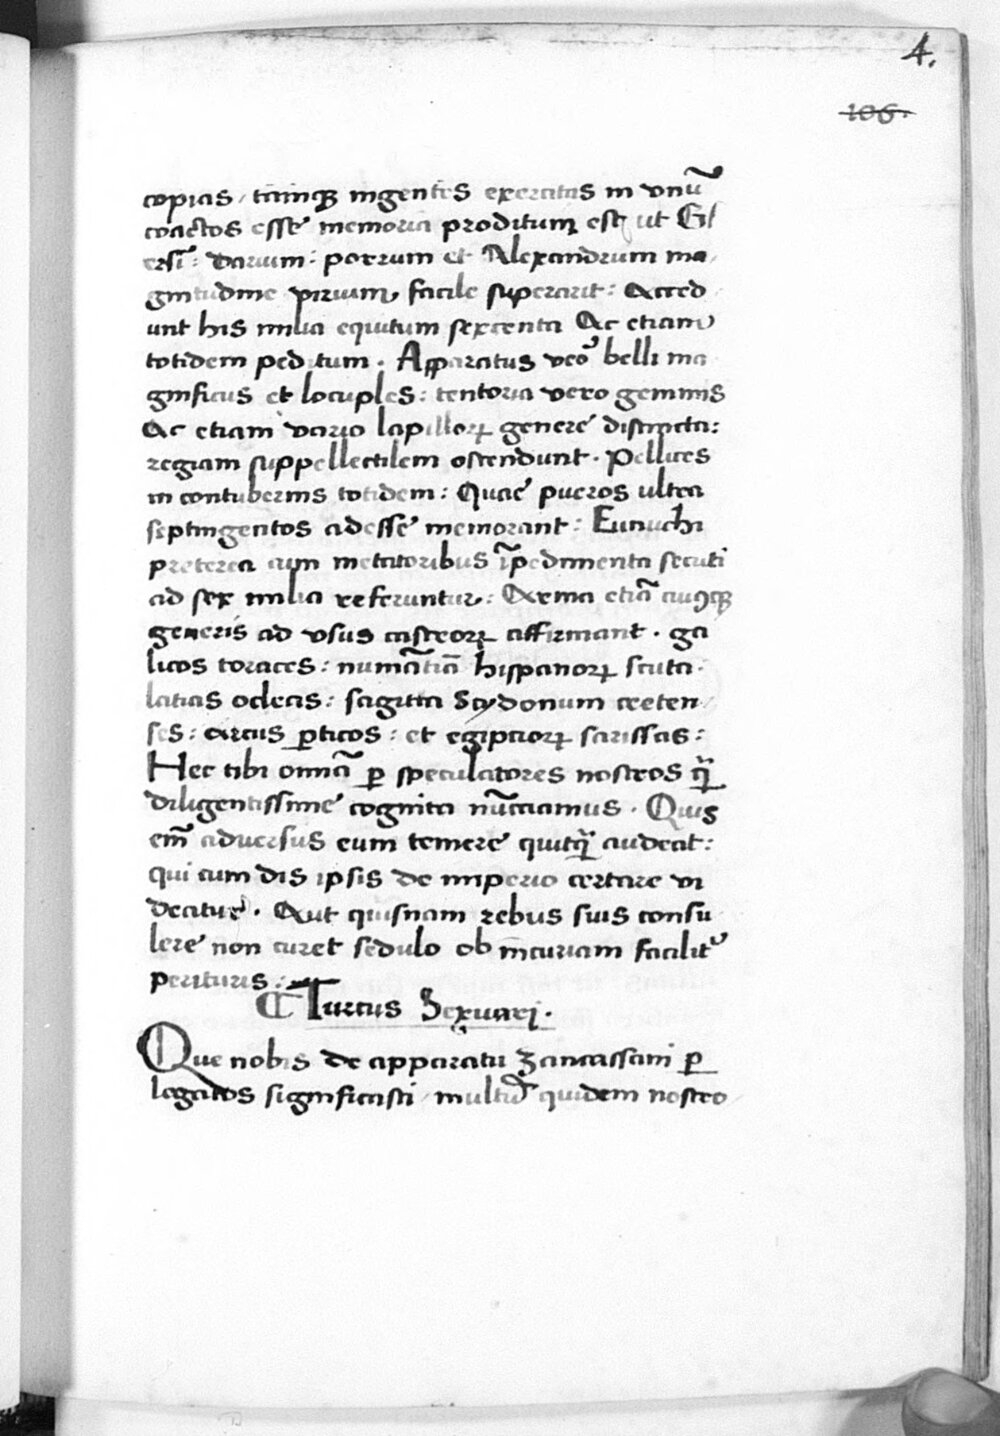 4.
106.
copias / tāmq3 ingentes exercitus in unū
coactos esse memoria proditum est ut
ersi : Darium : porrum et Alexandrum ma
gnitudine virium facile superarit : Acced
unt his milia equitum sexcenta Ac etiam
totidem peditum . Apparatus veo᾽ belli ma
gnificus et locuples : tentoria vero gemmis
Ac etiam vario lapilloꝝ genere distincta :
regiam suppellectilem ostendunt . Pellices
in contuberniis totidem : Quae pueros ultra
septingentos adesse memorant : Eunuchi
preterea cum metatoribus īpedimenta secuti
ad sex milia referuntur : Arma etiā cuiꝰq3
generis ad usus castroꝝ affirmant . ga
licos toraces : numātiā hispanoꝝ scuta .
latias ocleas : sagitta Scydonum creten
ses : arcus ꝑticos : et egiptioꝝ sarissas :
Hec tibi omnīa ꝑ speculatores nostros q̄
diligentissime cognita nūctiamus . Quis
em̄ adversus eum temere quitq̄ audeat :
qui cum dis ipsis de imperio certare vi
deatur . Aut quisnam rebus suis consu
lere non curet sedulo ob īncuriam facilit᾽
perituris :
¶ Turcus Sexvarj .
Que nobis de apparatu Zancassani ꝑ
legatos significasti / multū quidem nostro